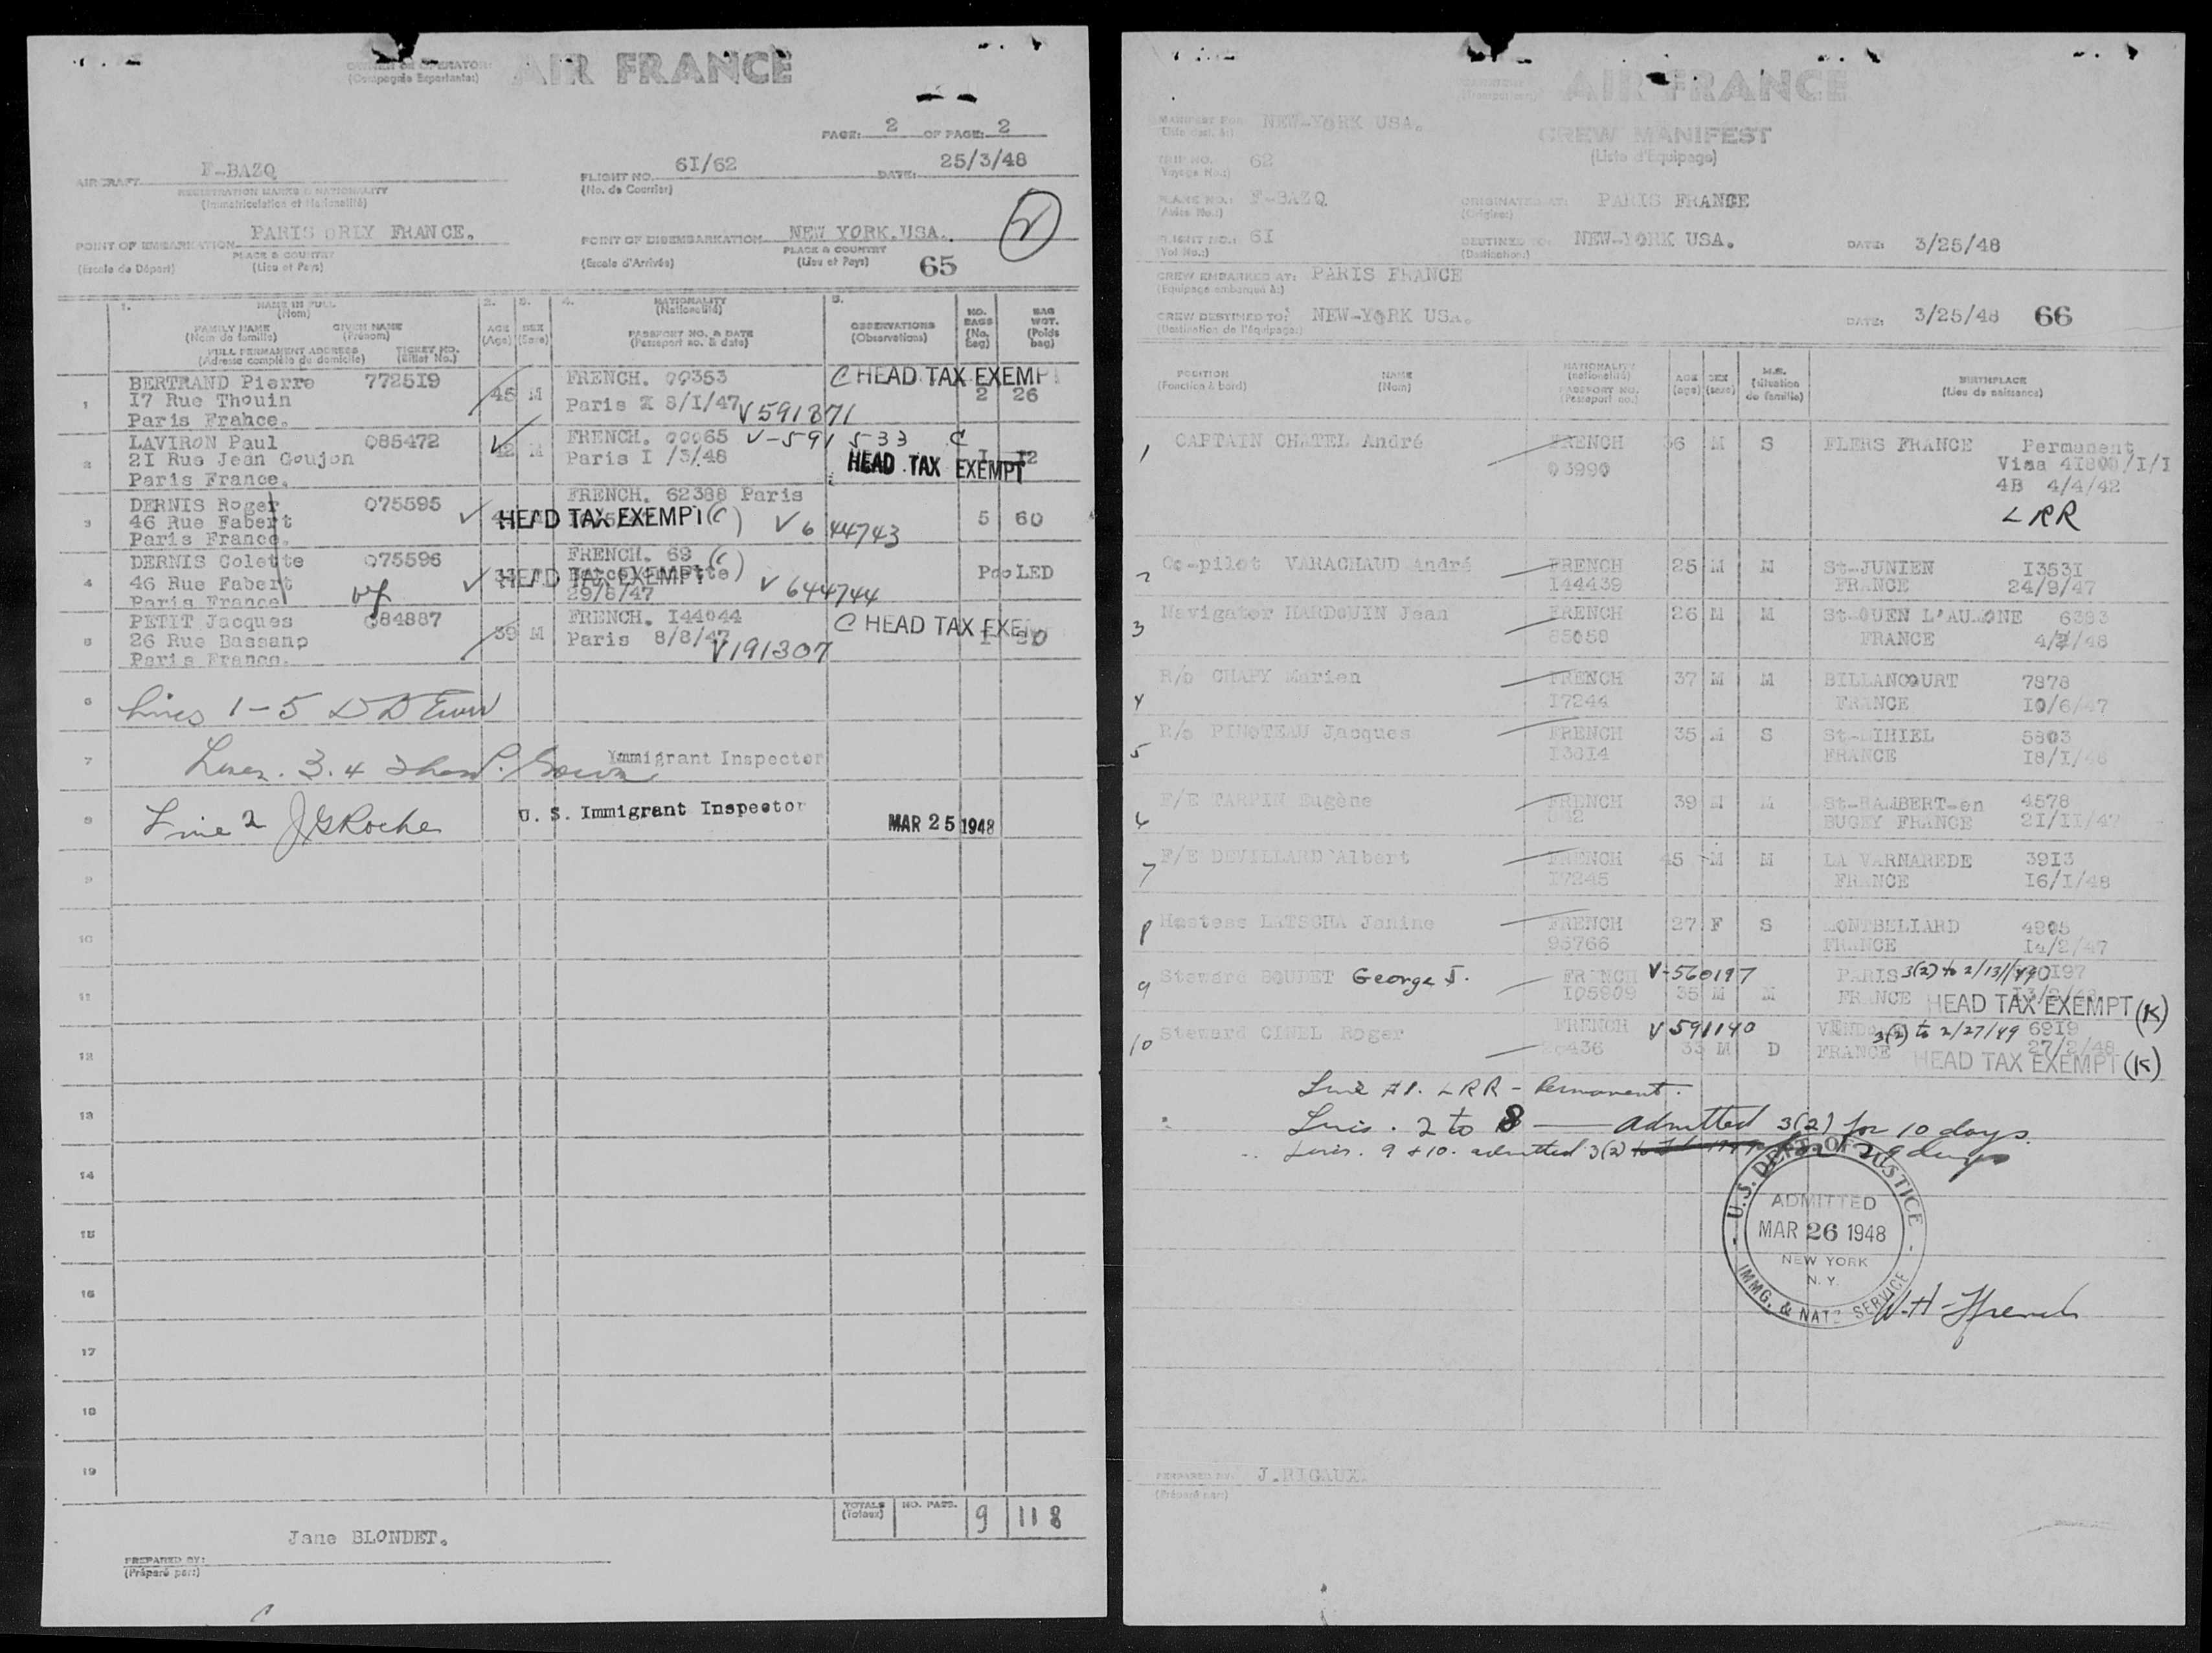 OWNER OR OPERATOR: AIR FRANCE
(Compagnie Exportante:)
PAGE: 2 OF PAGE: 2
AIRCRAFT F-BAZQ FLIGHT NO. 6I/62 DATE: 25/3/48
REGISTRATION MARKS & NATIONALITY (No. de Courrier)
(Immatriculation et Nationalité)
2
POINT OF EMBARKATION PARIS ORLY FRANCE. POINT OF DISEMBARKATION NEW YORK.USA.
PLACE & COUNTRY PLACE & COUNTRY
(Escale de Départ) (Lieu et Pays) (Escale d'Arrivée) (Lieu et Pays) 65
1. NAME IN FULL 2. 3. 4. NATIONALITY 5. NO. BAGS BAG WGT.
(Nom) (Nationalité) (No. bag) (Poids bag)
FAMILY NAME GIVEN NAME AGE SEX PASSPORT NO. & DATE OBSERVATIONS
(Nom de famille) (Prénom) (Age) (Sexe) (Passeport no. & date) (Observations)
FULL PERMANENT ADDRESS TICKET NO.
(Adresse complète du domicile) (Billet No.)
1 BERTRAND Pierre 7725I9 45 M FRENCH. 00353 C HEAD TAX EXEMPT 2 26
I7 Rue Thouin Paris 8/I/47 V591871
Paris France.
2 LAVIRON Paul 085472 42 M FRENCH. 00065 V-591533 C I I2
2I Rue Jean Goujon Paris I /3/48 HEAD TAX EXEMPT
Paris France.
3 DERNIS Roger 075595 FRENCH. 62388 Paris
46 Rue Fabert HEAD TAX EXEMPT (C) V 644743 5 60
Paris France.
4 DERNIS Colette 075596 FRENCH. 69 (C)
46 Rue Fabert HEAD TAX EXEMPT PooLED
Paris France 29/8/47 V 644744
5 PETIT Jacques 084887 39 M FRENCH. I44044 C HEAD TAX EXEM
26 Rue Bassano Paris 8/8/47 V191307 I
Paris France.
6 Lines 1-5
7 Lines. 3.4 Immigrant Inspector
8 Line 2 J G Roche U. S. Immigrant Inspector MAR 25 1948
9
10
11
12
13
14
15
16
17
18
19
TOTALS NO. PASS. 9 118
(Totaux)
Jane BLONDET.
PREPARED BY:
(Préparé par:)
AIR FRANCE
MANIFEST FOR NEW-YORK USA. CREW MANIFEST
(Liste d'Equipage)
TRIP NO. 62
(Voyage No.:)
PLANE NO.: F-BAZQ ORIGINATED AT: PARIS FRANCE
(Avion No.:) (Origine:)
FLIGHT NO.: 6I DESTINED TO: NEW-YORK USA. DATE: 3/25/48
(Vol No.:) (Destination:)
CREW EMBARKED AT: PARIS FRANCE
(Equipage embarqué à:)
CREW DESTINED TO: NEW-YORK USA. DATE: 3/25/48 66
(Destination de l'équipage:)
POSITION NAME NATIONALITY AGE SEX M.S. BIRTHPLACE
(Fonction à bord) (Nom) (nationalité) (age) (sexe) (situation de famille) (Lieu de naissance)
PASSPORT NO.
(Passeport no.)
1 CAPTAIN CHATEL André FRENCH 36 M S FLERS FRANCE Permanent
03990 Visa 4I800/I/I
4B 4/4/42
LRR
2 Co-pilot VARACHAUD André FRENCH 25 M M St-JUNIEN I353I
144439 FRANCE 24/9/47
3 Navigator HARDOUIN Jean FRENCH 26 M M St-OUEN L'AUMONE 6383
85059 FRANCE 4/2/48
4 R/o CHAPY Marien FRENCH 37 M M BILLANCOURT 7878
I7244 FRANCE I0/6/47
5 R/o PINOTEAU Jacques FRENCH 35 M S St-MIHIEL 5803
I3814 FRANCE I8/I/48
6 F/E TARPIN Eugène FRENCH 39 M M St-RAMBERT-en 4578
BUGEY FRANCE 2I/II/47
7 F/E DEVILLARD Albert FRENCH 45 M M LA VARNAREDE 39I3
I7245 FRANCE I6/I/48
8 Hostess LATSCHA Janine FRENCH 27 F S MONTBELIARD 4905
FRANCE
9 Steward BOUDET George J. FRENCH V-560197 PARIS 3(2) to
I05909 35 M M FRANCE HEAD TAX EXEMPT (K)
10 Steward CINEL Roger FRENCH V591140 3(2) to 2/27/49 69I9
33 M D FRANCE 27/2/48
HEAD TAX EXEMPT (K)
Line #1. LRR - Permanent.
Lines. 2 to 8 — Admitted 3(2) for 10 days.
Lines. 9 + 10. admitted 3(2) 29 days
U.S. DEPT. OF JUSTICE
ADMITTED
MAR 26 1948
NEW YORK
N. Y.
IMMG. & NATZ SERVICE
W. H. French
PREPARED BY: J.RIGAUX.
(Préparé par:)